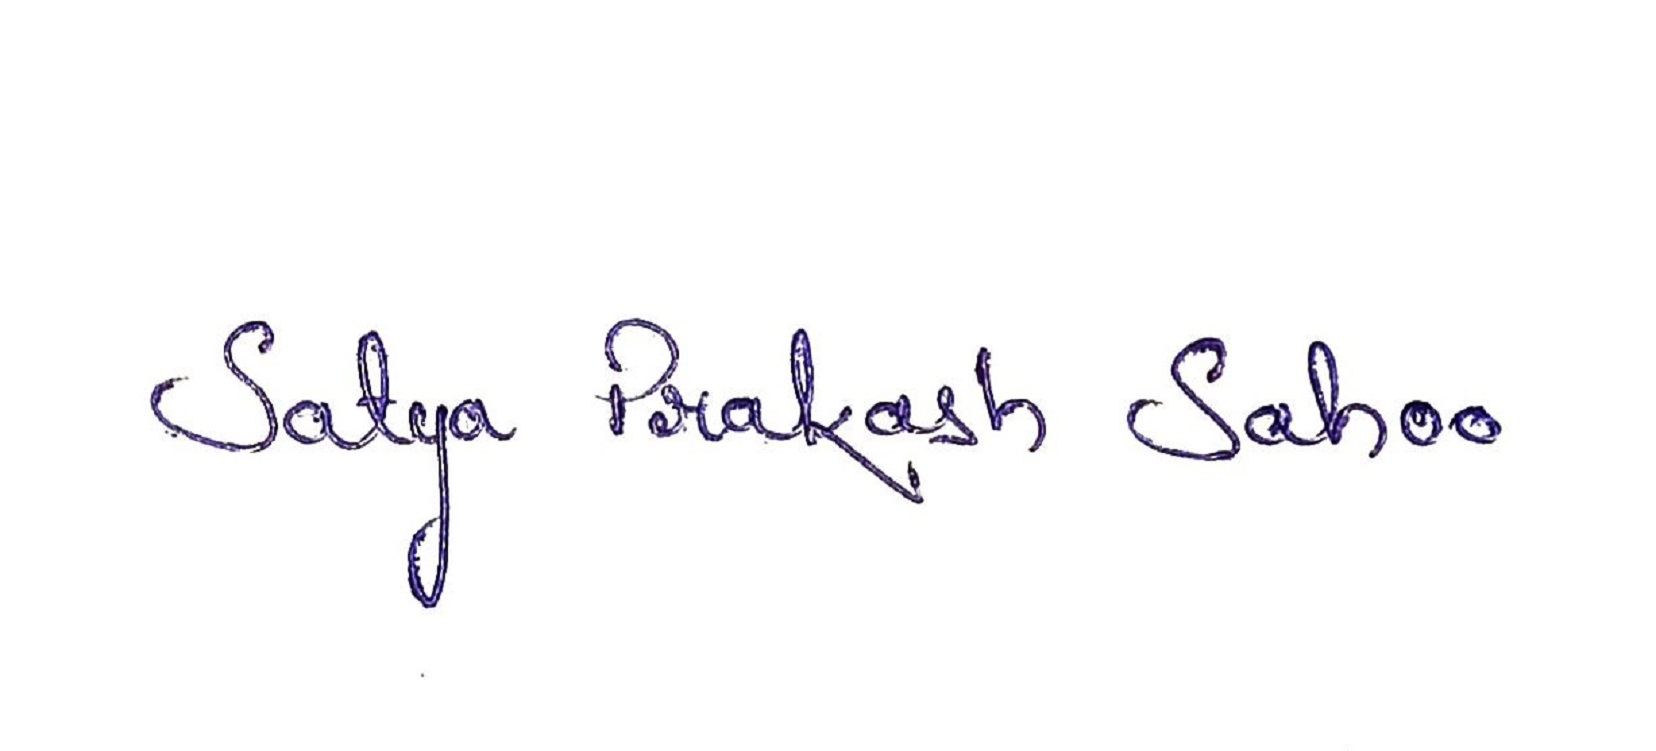 Satya Prakash Sahoo